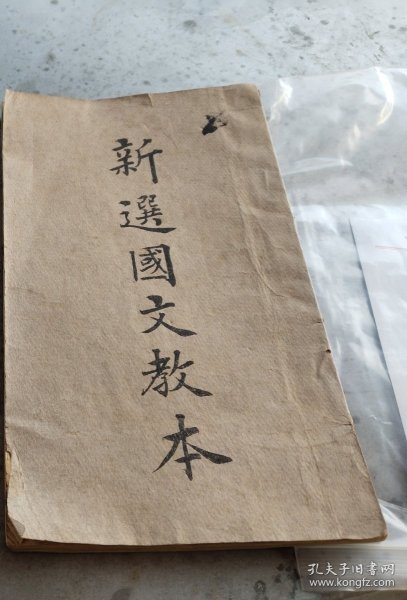 新選國文教本
孔夫子旧书网
www.kongfz.com